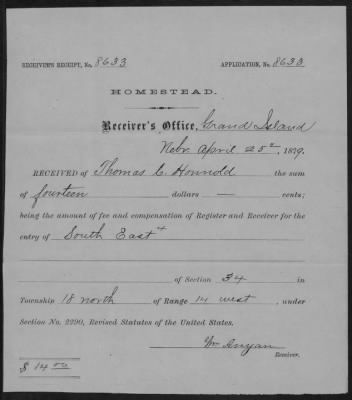 RECEIVER'S RECEIPT, No. 8633 APPLICATION, No. 8633
HOMESTEAD.
Receiver's Office, Grand Island
Nebr April 25th, 1879.
RECEIVED of Thomas C. Honnold the sum
of fourteen dollars — cents;
being the amount of fee and compensation of Register and Receiver for the
entry of South East 4
of Section 34 in
Township 18 north of Range 14 west, under
Section No. 2290, Revised Statutes of the United States.
Wm Anyan
Receiver.
$ 14.00